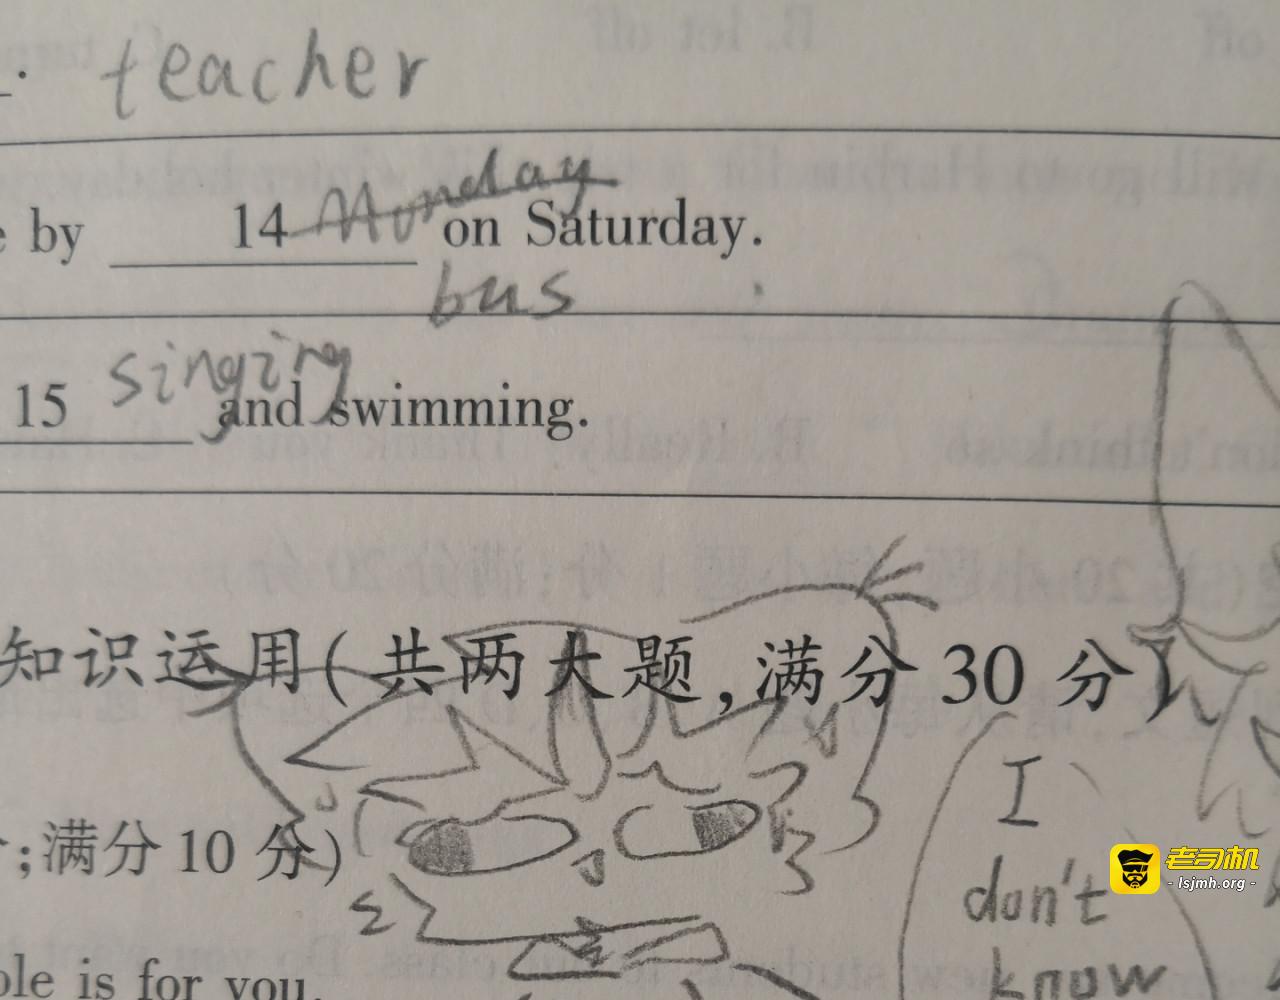 teacher
e by 14 Monday on Saturday.
bus
15 singing and swimming.
知识运用(共两大题,满分 30 分)
I
;满分 10 分)
don't
老司机
- lsjmh.org -
know
ole is for you.